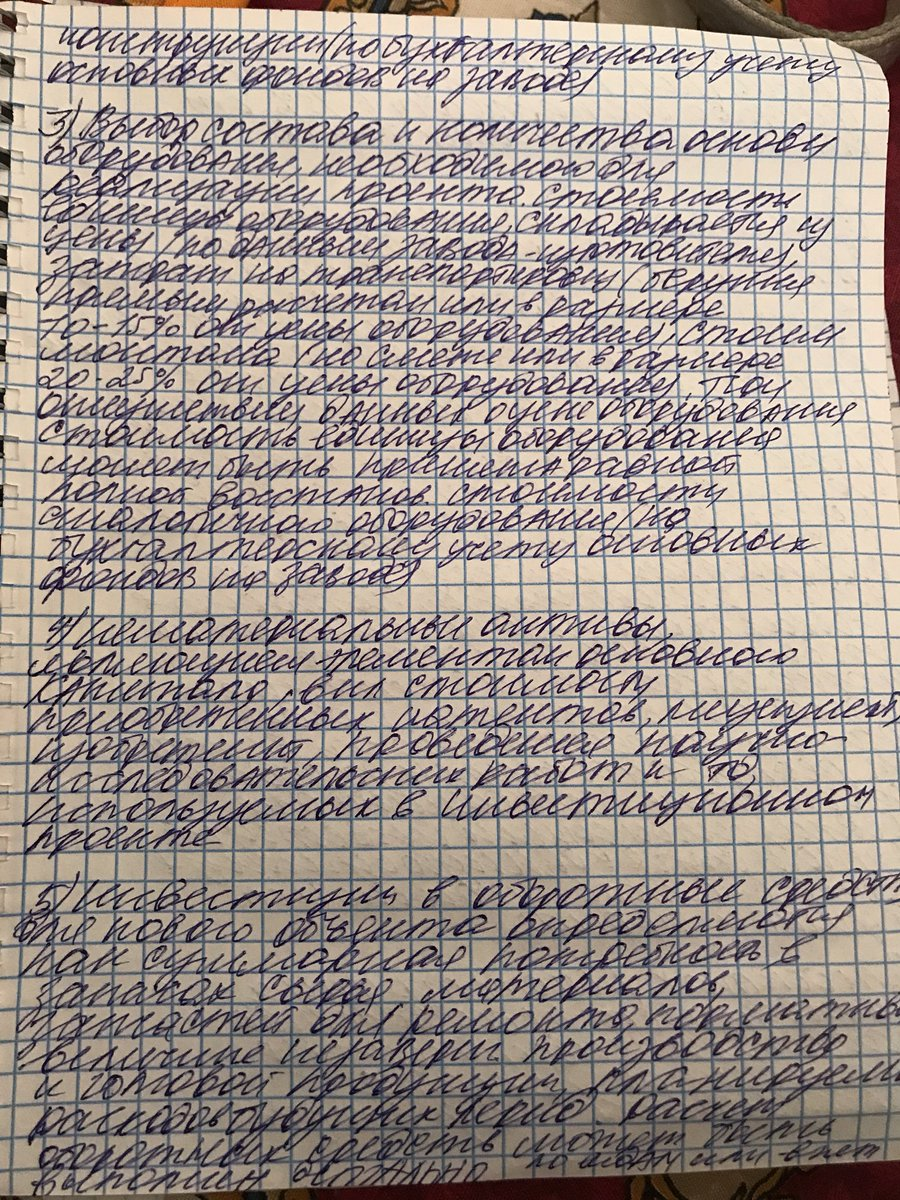 конструкции (по бухгалтерскому учету
основных фондов на заводе)
3) Выбор состава и количества основн
оборудования, необходимого для
реализации проекта. Стоимость
единицы оборудования складывается из
цены (по данным завода-изготовителя),
затрат на транспортировку (
прямым расчетом или в размере
10-15% от цены оборудования), стоим
монтажа (по смете или в размере
20-25% от цены оборудования). При
отсутствии данных о цене оборудования
стоимость единицы оборудования
может быть принята равной
полной восстанов. стоимости
аналогичного оборудования (по
бухгалтерскому учету основных
фондов на заводе)
4) Нематериальные активы,
являющиеся элементом основного
капитала, вкл стоимость
приобретенных патентов, лицензий,
изобретений, проведения научно-
исследовательских работ и тд,
используемых в инвестиционном
проекте
5) Инвестиции в оборотные средст
для нового объекта определяются
как суммарная потребность в
запасах сырья, материалов,
запчастей для ремонта, нормативн
величине незаверш. производства
и готовой продукции, планируем
расходов будущих период. Расчет
оборотных средств может быть
выполнен детально по видам или